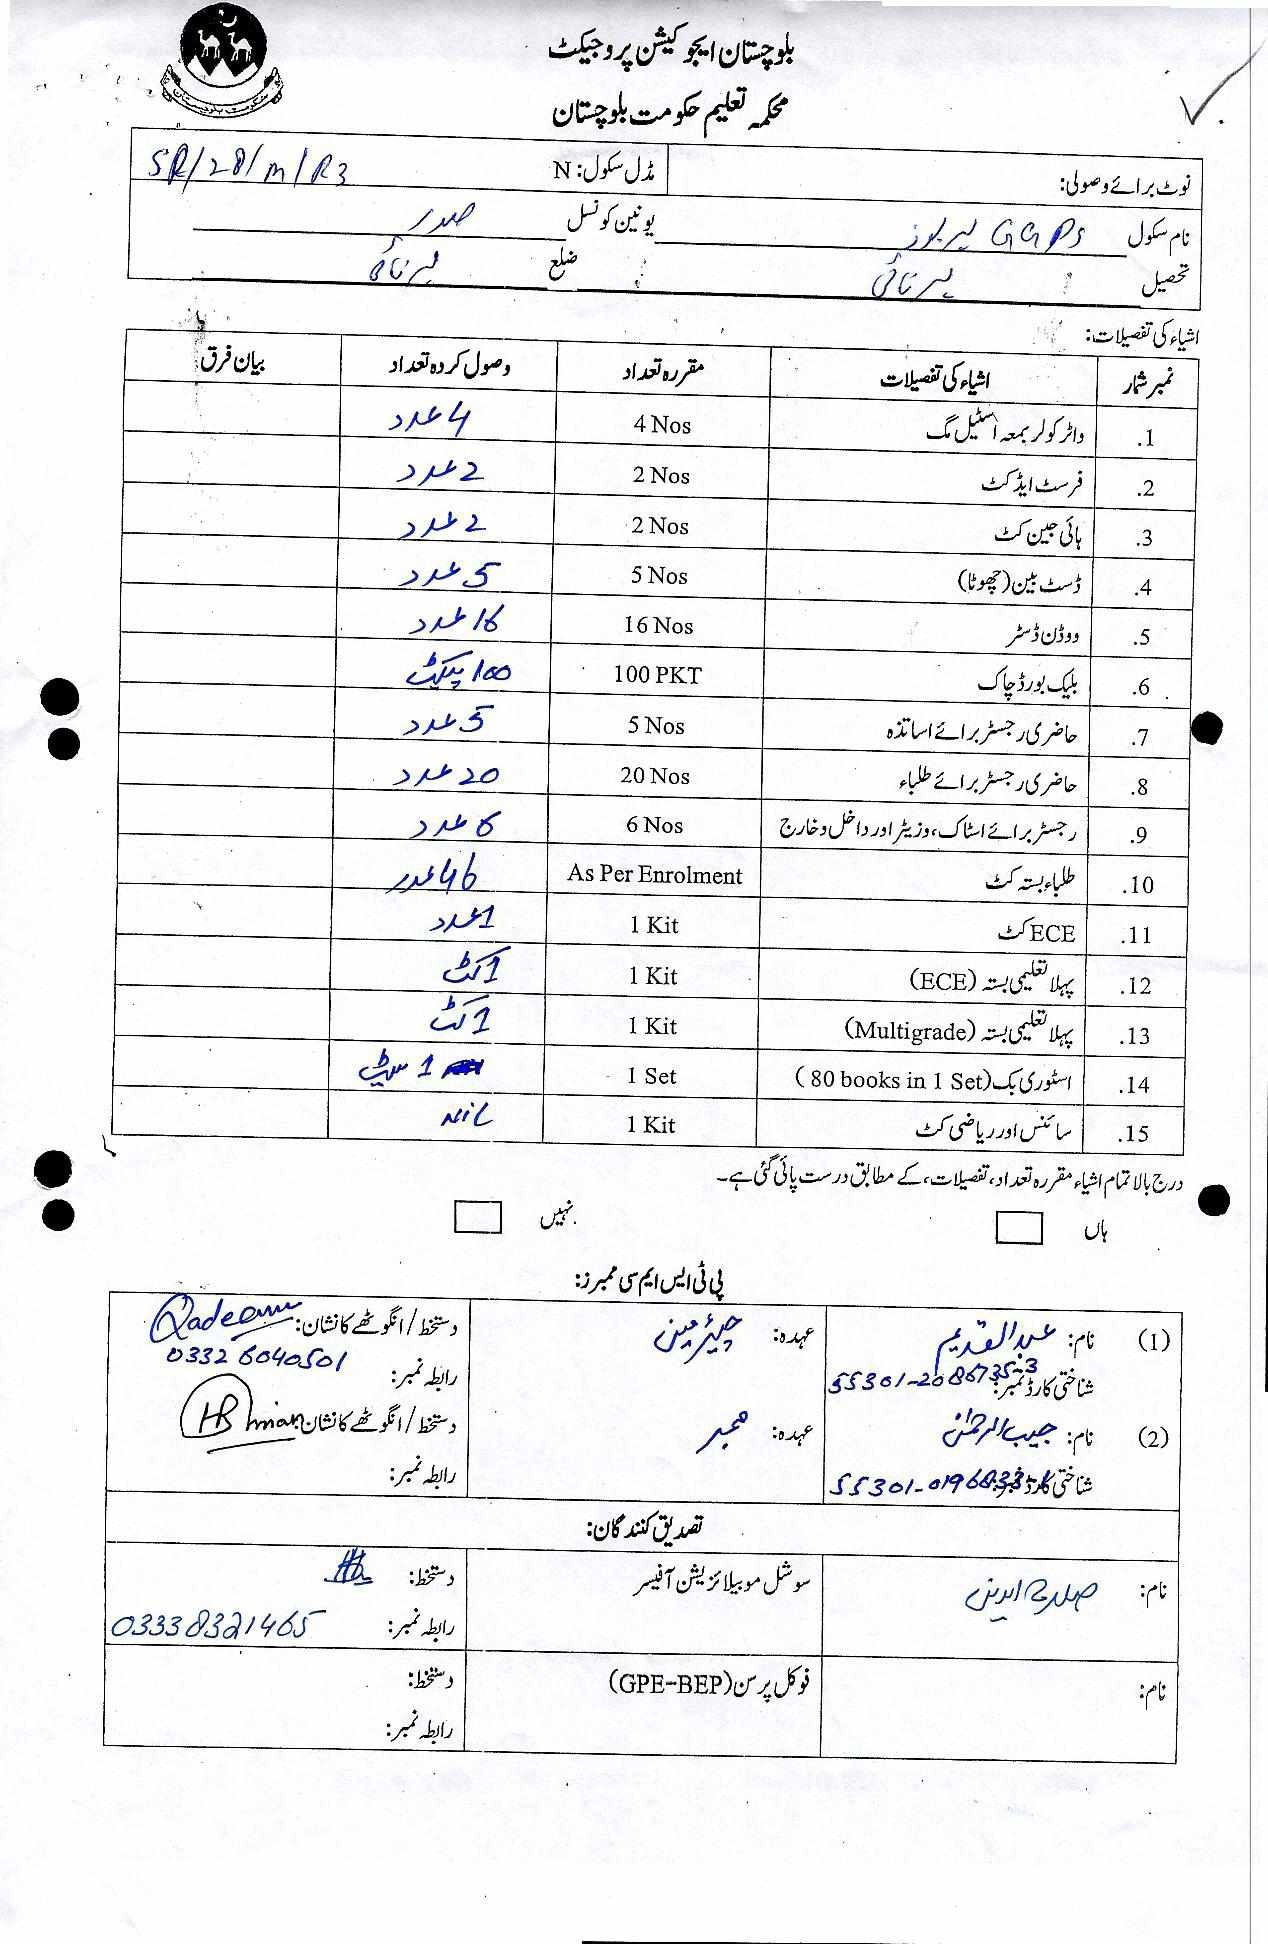 بلوچستان ایجوکیشن پروجیکٹ
محکمہ تعلیم حکومت بلوچستان
حکومت بلوچستان
نوٹ برائے وصولی: مڈل سکول: N SR/28/m/R3
نام سکول GGPS یونین کونسل صدر
تحصیل ہرنائی ضلع ہرنائی
اشیاء کی تفصیلات:
نمبر شمار اشیاء کی تفصیلات مقررہ تعداد وصول کردہ تعداد بیان فرق
1. واٹر کولر بمعہ اسٹیل مگ 4 Nos 4 عدد
2. فرسٹ ایڈ کٹ 2 Nos 2 عدد
3. ہائی جین کٹ 2 Nos 2 عدد
4. ڈسٹ بین (چھوٹا) 5 Nos 5 عدد
5. ووڈن ڈسٹر 16 Nos 16 عدد
6. بلیک بورڈ چاک 100 PKT 100 پیکیٹ
7. حاضری رجسٹر برائے اساتذہ 5 Nos 5 عدد
8. حاضری رجسٹر برائے طلباء 20 Nos 20 عدد
9. رجسٹر برائے اسٹاک، وزیٹر اور داخل و خارج 6 Nos 6 عدد
10. طلباء بستہ کٹ As Per Enrolment 46 عدد
11. ECE کٹ 1 Kit 1 عدد
12. پہلا تعلیمی بستہ (ECE) 1 Kit 1 کٹ
13. پہلا تعلیمی بستہ (Multigrade) 1 Kit 1 کٹ
14. اسٹوری بک (80 books in 1 Set) 1 Set 1 سیٹ
15. سائنس اور ریاضی کٹ 1 Kit Nil
درج بالا تمام اشیاء مقررہ تعداد، تفصیلات، کے مطابق درست پائی گئی ہے۔
ہاں نہیں
پی ٹی ایس ایم سی ممبرز:
(1) نام: عبدالقدیم عہدہ: چیئرمین دستخط / انگوٹھے کا نشان: Qadeem
شناختی کارڈ نمبر: 55301-2086735-3 رابطہ نمبر: 0332 6040501
(2) نام: حبیب الرحمٰن عہدہ: ممبر دستخط / انگوٹھے کا نشان:
شناختی کارڈ نمبر: رابطہ نمبر:
تصدیق کنندگان:
نام: سوشل موبیلائزیشن آفیسر دستخط:
رابطہ نمبر: 03338321465
نام: فوکل پرسن (GPE-BEP) دستخط:
رابطہ نمبر: